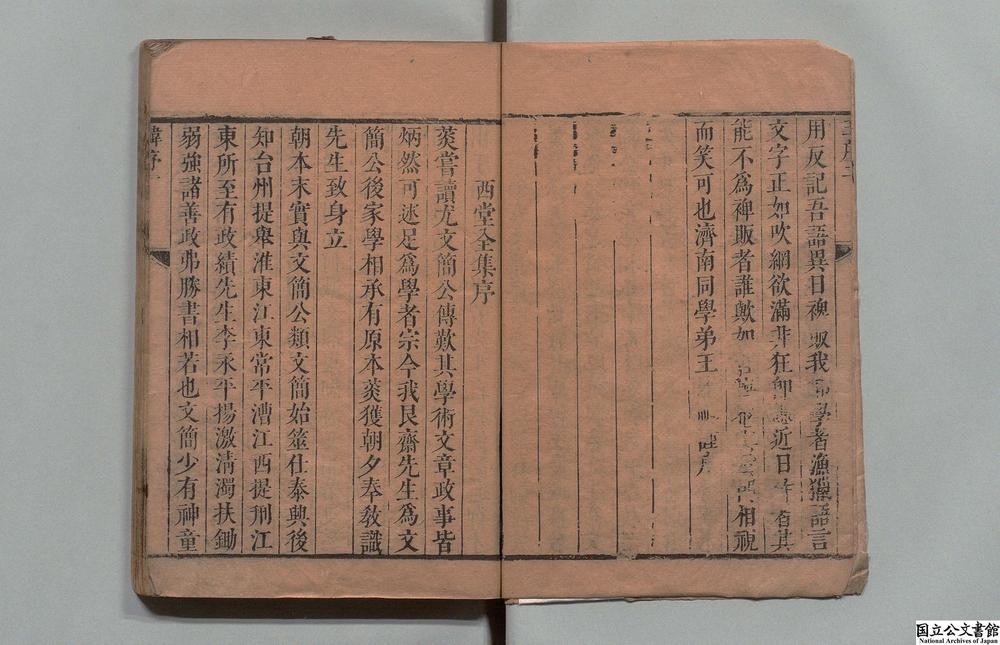 用反記吾語異日裨販我
學者漁獵語言
文字正如吹網欲滿非狂卽
近日
其
能不爲裨販者誰歟如
相視
而笑可也濟南同學弟王
西堂全集序
菼嘗讀尤文簡公傳歎其學術文章政事皆
炳然可述足爲學者宗今我艮齋先生爲文
簡公後家學相承有原本菼獲朝夕奉敎識
先生致身立
朝本末實與文簡公類文簡始筮仕泰興後
知台州提舉淮東江東常平漕江西提刑江
東所至有政績先生李永平揚激淸濁扶鋤
弱強諸善政弗勝書相若也文簡少有神童
韓序一
国立公文書館
National Archives of Japan